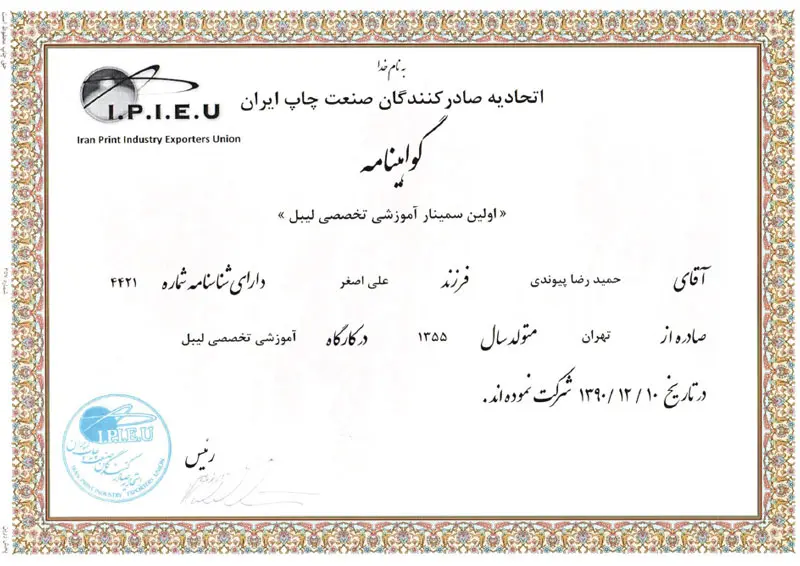 به نام خدا
I.P.I.E.U
اتحادیه صادرکنندگان صنعت چاپ ایران
Iran Print Industry Exporters Union
گواهینامه
«اولین سمینار آموزشی تخصصی لیبل»
آقای حمید رضا پیوندی فرزند علی اصغر دارای شناسنامه شماره ۴۴۲۱
صادره از تهران متولد سال ۱۳۵۵ در کارگاه آموزشی تخصصی لیبل
در تاریخ ۱۰ / ۱۲ / ۱۳۹۰ شرکت نموده اند.
رئیس
I.P.I.E.U
اتحادیه صادرکنندگان صنعت چاپ ایران
IRAN PRINT INDUSTRY EXPORTERS UNION